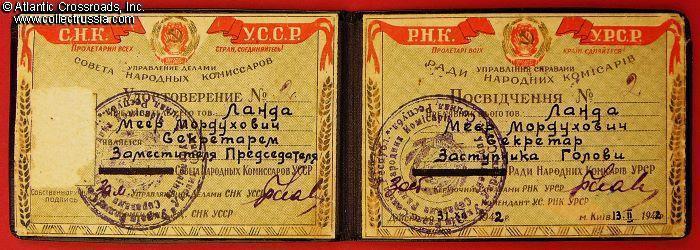 © Atlantic Crossroads, Inc.
www.collectrussia.com
С.Н.К. У.С.С.Р.
ПРОЛЕТАРИИ ВСЕХ СТРАН, СОЕДИНЯЙТЕСЬ!
УПРАВЛЕНИЕ ДЕЛАМИ
СОВЕТА НАРОДНЫХ КОМИССАРОВ
Удостоверение №
тов. Ланда
Меер Мордухович
является Секретарем
Заместителя Председателя
Совета Народных Комиссаров УССР
Собственноручная подпись
Зам. Управляющий Делами СНК УССР
СНК УССР
Р.Н.К. У.Р.С.Р.
ПРОЛЕТАРІ ВСІХ КРАЇН, ЄДНАЙТЕСЯ!
УПРАВЛІННЯ СПРАВАМИ
РАДИ НАРОДНИХ КОМІСАРІВ
Посвідчення № 2
тов. Ланда
Меер Мордухович
Секретар
Заступника Голови
Ради Народних Комісарів УРСР
Зам. Керуючий Справами РНК УРСР
Комендант УС. РНК УРСР
м. Київ 13.II 1942